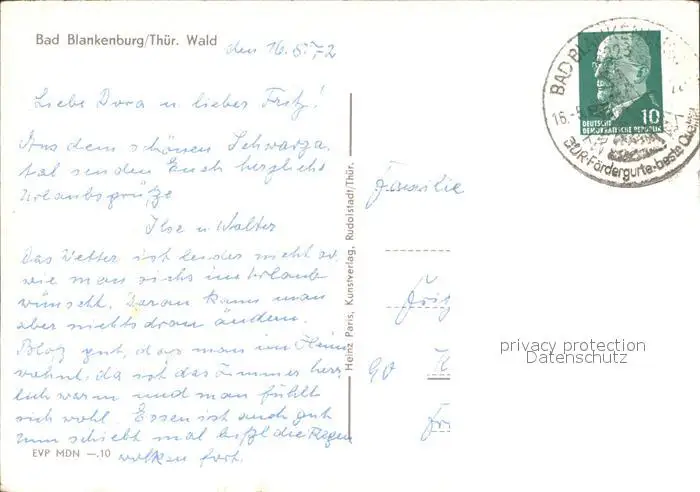 Bad Blankenburg/Thür. Wald
den 16.5.72
Liebe Dora u. lieber Fritz!
Aus dem schönen Schwarza-
tal senden Euch herzliche
Urlaubsgrüße
Ilse u. Walter
Das Wetter ist leider nicht so,
wie man sichs im Urlaub
wünscht. Daran kann man
aber nichts dran ändern.
Bloß gut, dass man im Heim
wohnt, da ist das Zimmer herr-
lich warm und man fühlt
sich wohl. Essen ist auch gut
nun schiebt mal die Regen
wolken fort.
EVP MDN —.10
Heinz Paris, Kunstverlag, Rudolstadt/Thür.
Familie
Fritz
90
BAD BLANKENBURG
16.-5
BUR-Fördergurte-beste Qualität
10
DEUTSCHE
DEMOKRATISCHE REPUBLIK
privacy protection
Datenschutz